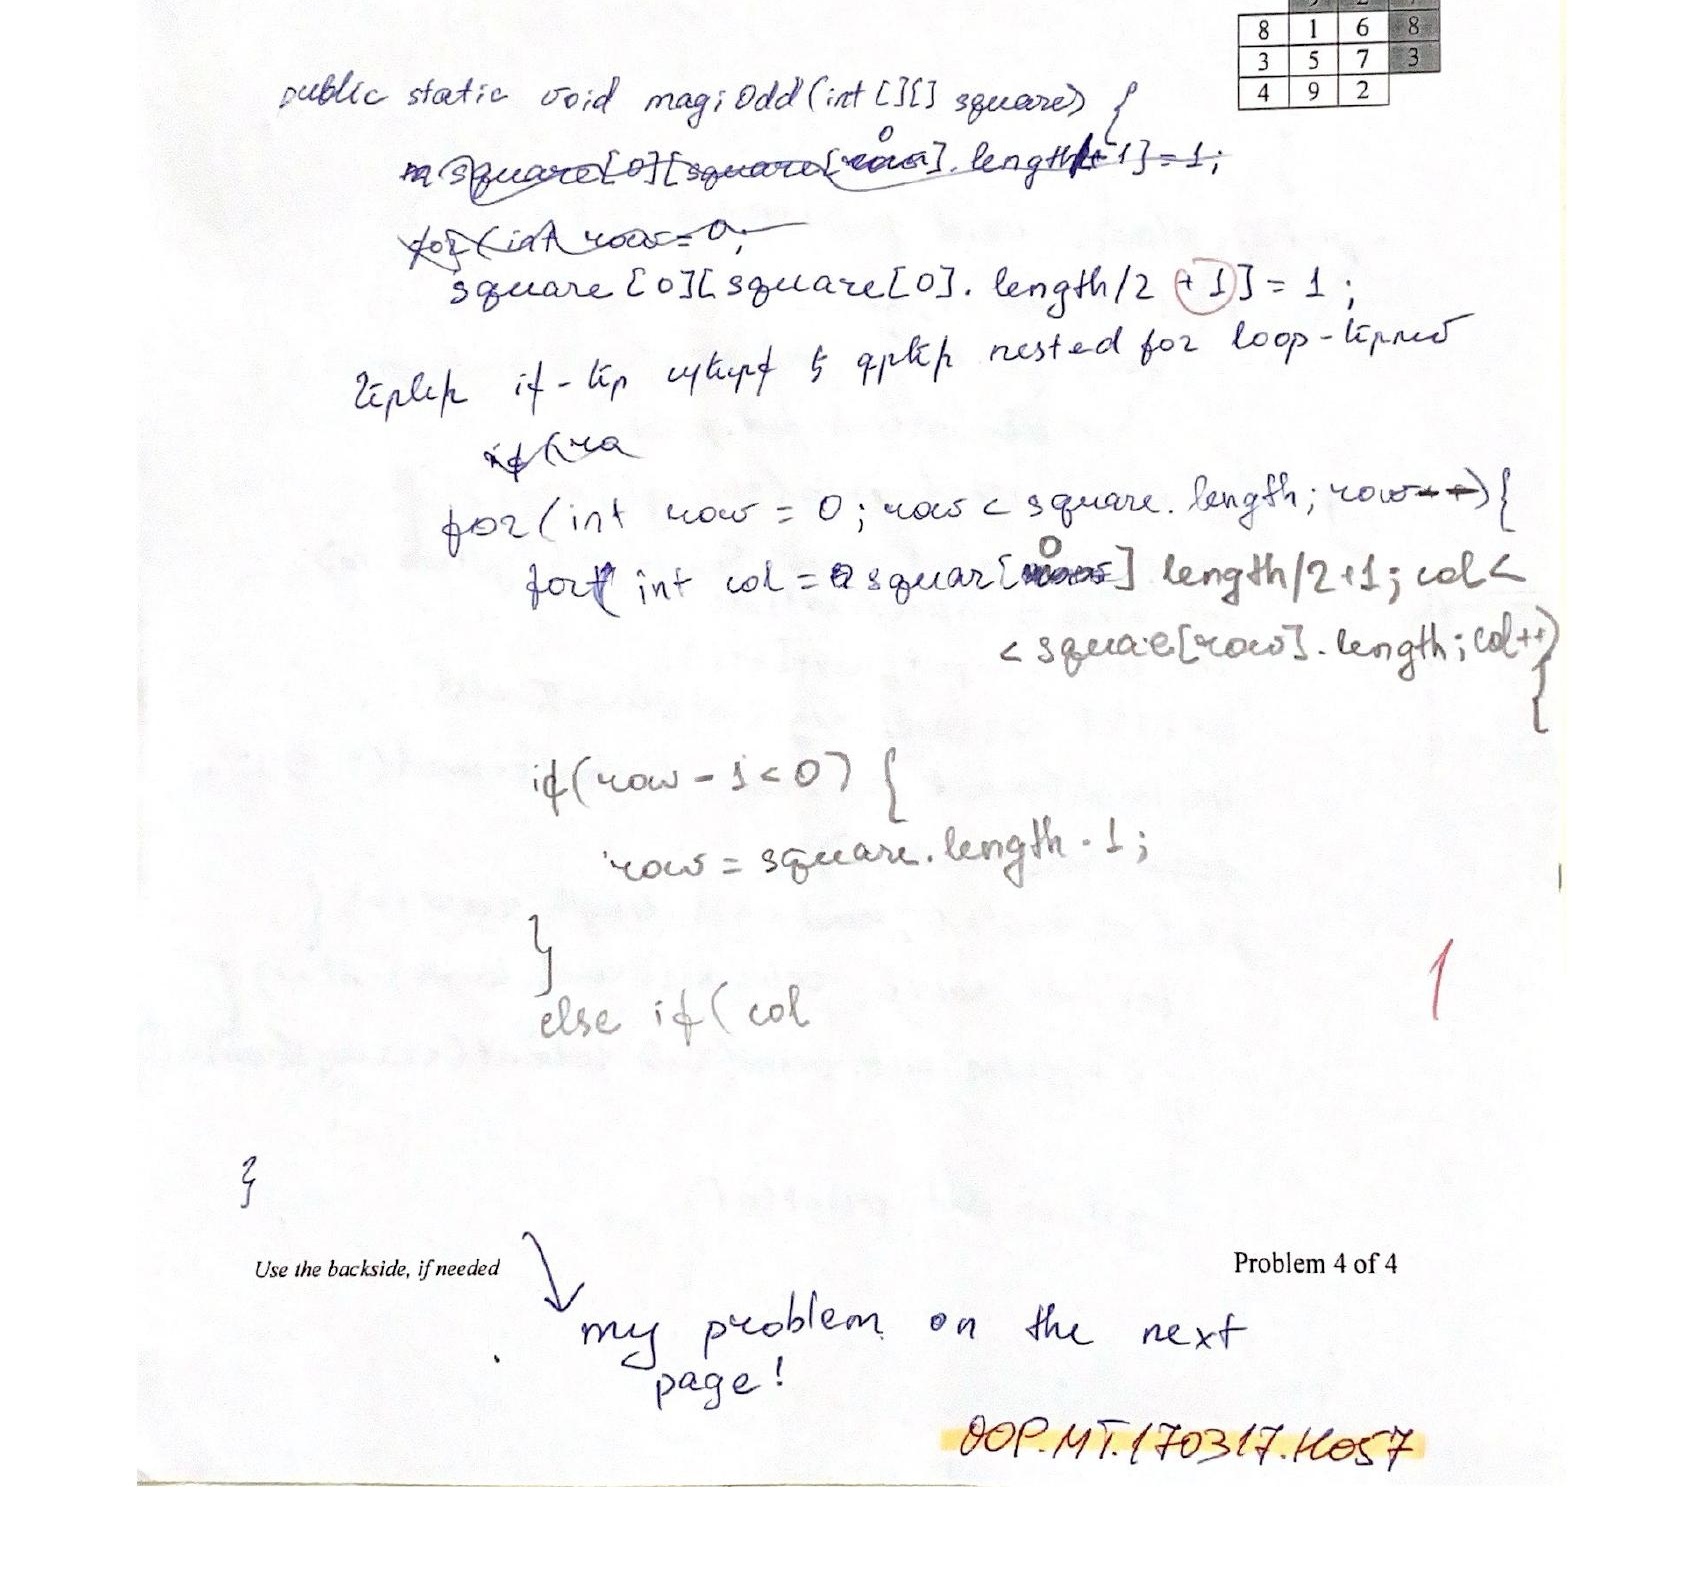 8 1 6 8
3 5 7 3
4 9 2
public static void magiOdd(int[][] square) {
square[0][square[0].length/2 + 1] = 1;
if - եր պետք է գրեի nested for loop-երում
for(int row = 0; row < square.length; row--){
for( int col = squar[0] length/2+1; col <
< squae[row].length; col++)
{
if(row - 1 < 0) {
row = square.length - 1;
}
else if( col
1
}
Use the backside, if needed
Problem 4 of 4
my problem on the next
page!
OOP.MT.170317.H057